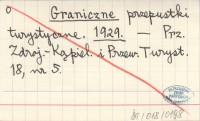 Graniczne przepustki
turystyczne. 1929. — Prz.
Zdroj.-Kąpiel. i Przew. Turyst.
18, nr 5.